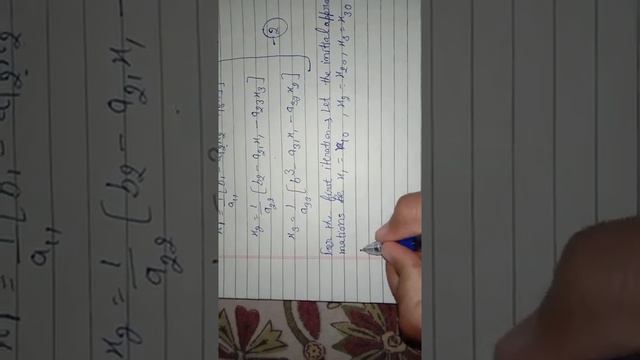 x₁ = 1/a₁₁ [b₁ - a₁₂x₂ - a₁₃x₃]
x₂ = 1/a₂₂ [b₂ - a₂₁x₁ - a₂₃x₃]
x₃ = 1/a₃₃ [b3 - a₃₁x₁ - a₃₂x₂]
-②
For the first iteration → Let the initial appro
mations be x₁ = x₁₀, x₂ = x₂₀, x₃ = x₃₀